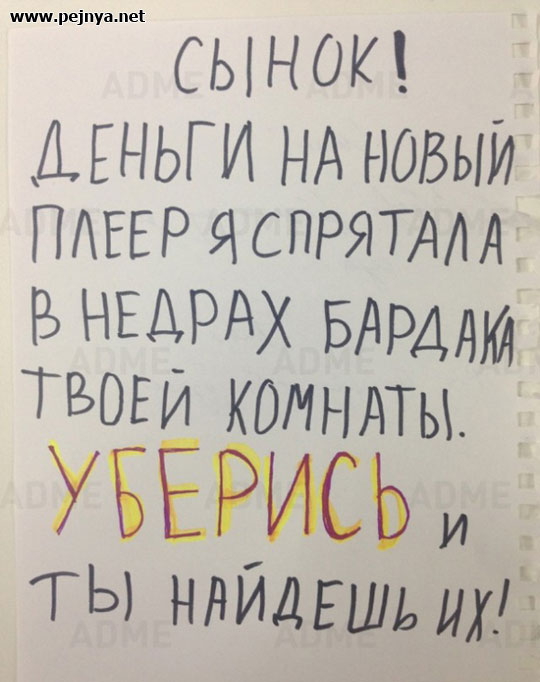 www.pejnya.net
СЫНОК!
ДЕНЬГИ НА НОВЫЙ
ПЛЕЕР Я СПРЯТАЛА
В НЕДРАХ БАРДАКА
ТВОЕЙ КОМНАТЫ.
УБЕРИСЬ И
ТЫ НАЙДЕШЬ ИХ!
ADME
ADME
ADME
ADME
ADME
ADME
ADME
ADME
ADME
ADME
ADME
ADME